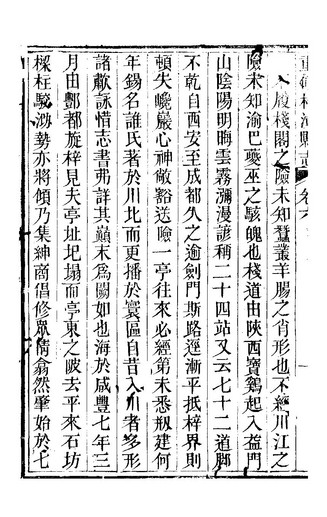 重修梓潼縣志 卷六
履棧閣之險未知蠶叢羊腸之肖形也不經川江之
險未知渝巴夔巫之駭魄也棧道由陝西寶鷄起入益門
山陰陽明晦雲霧瀰漫諺稱二十四站又云七十二道脚
不乾自西安至成都久之逾劍門斯路逕漸平抵梓界則
頓失巉巖心神敞豁送險一亭往來必經第未悉刱建何
年錫名誰氏著於川北而更播於寰區自昔入川者多形
諸歗詠惜志書弗詳其巔末爲闕如也海於咸豐七年三
月由酆都旋梓見夫亭址圮塌而亭東之陂去平來石坊
樑柱駿泐勢亦將傾乃集紳商倡修眾情翕然肇始於七